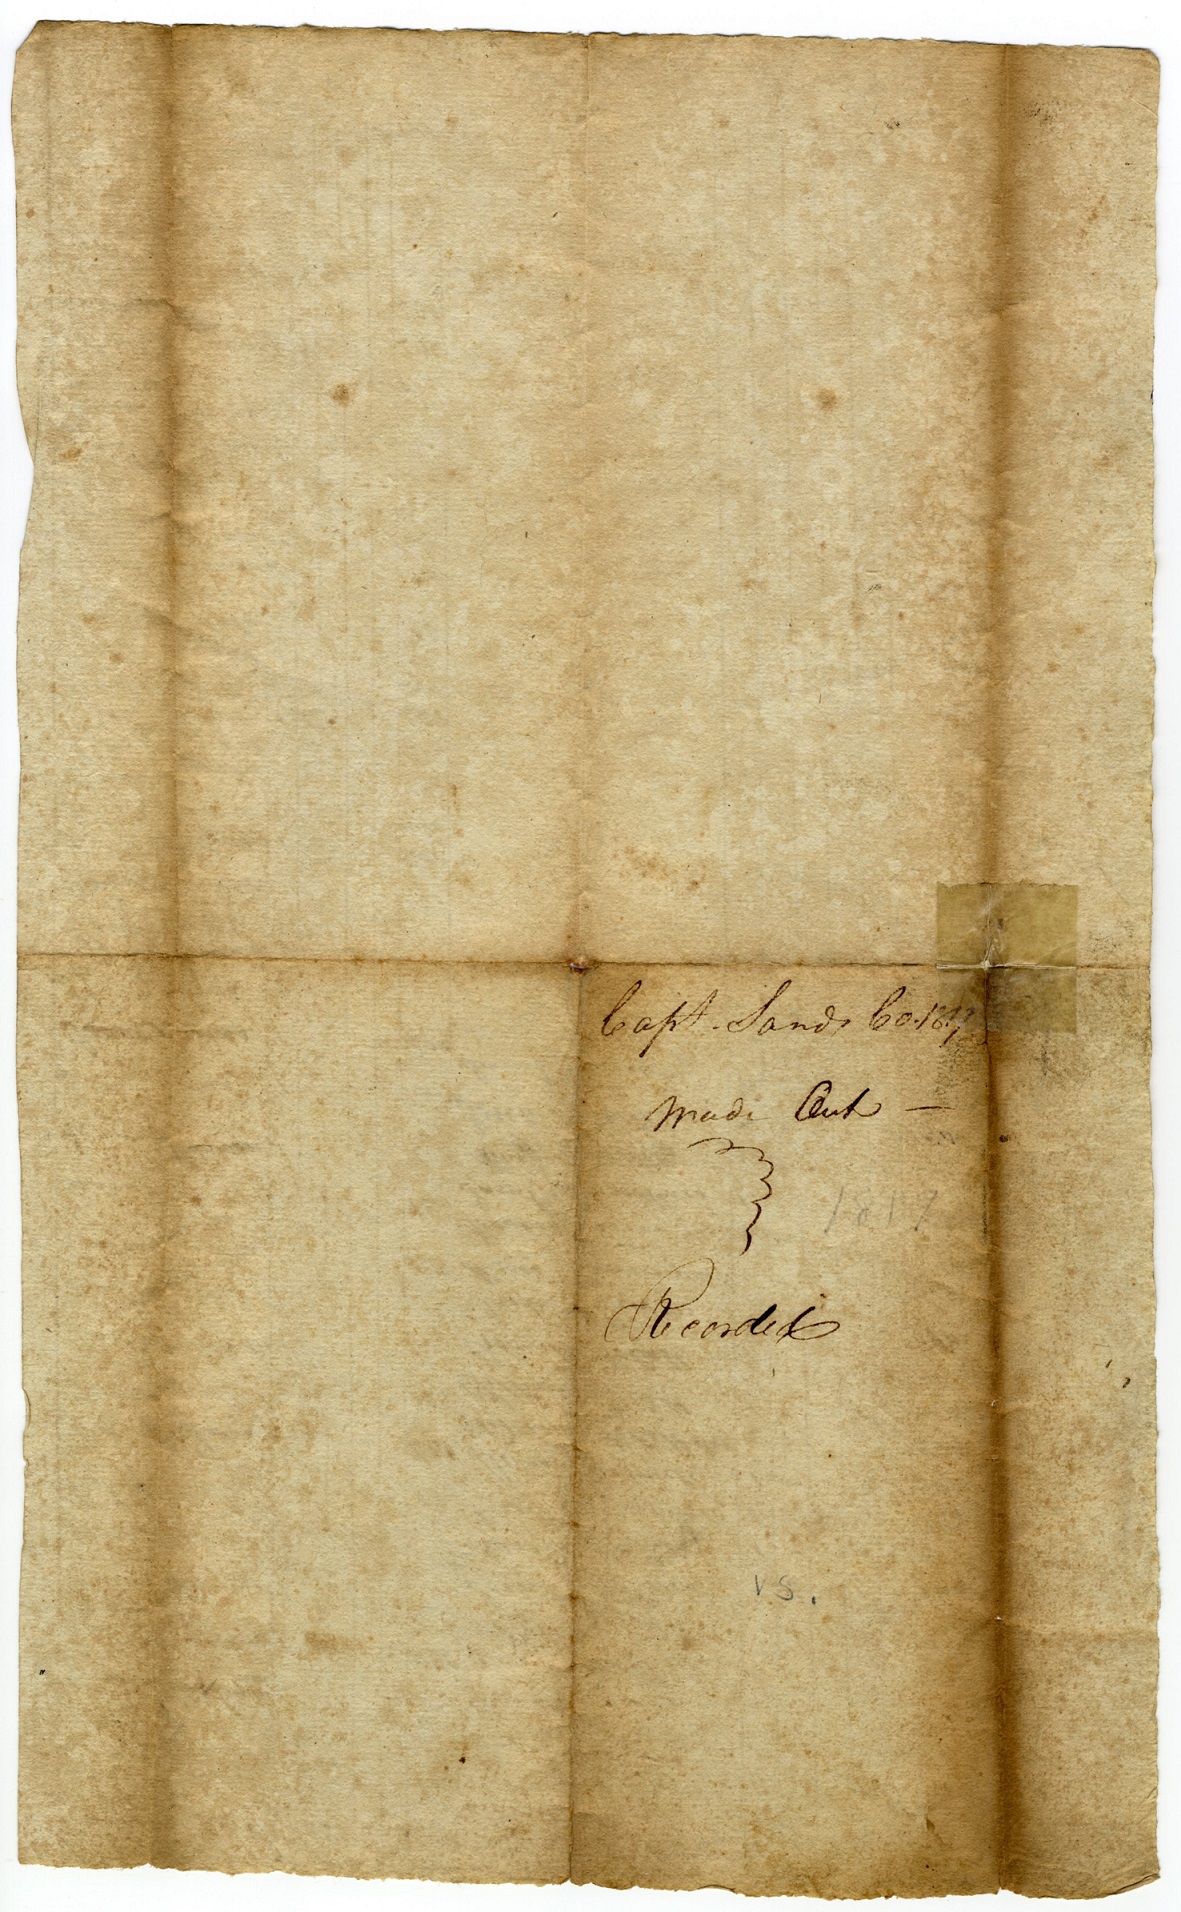 Capt. Sands Co. 1817
Made Out —
1817
Recorded
V S.